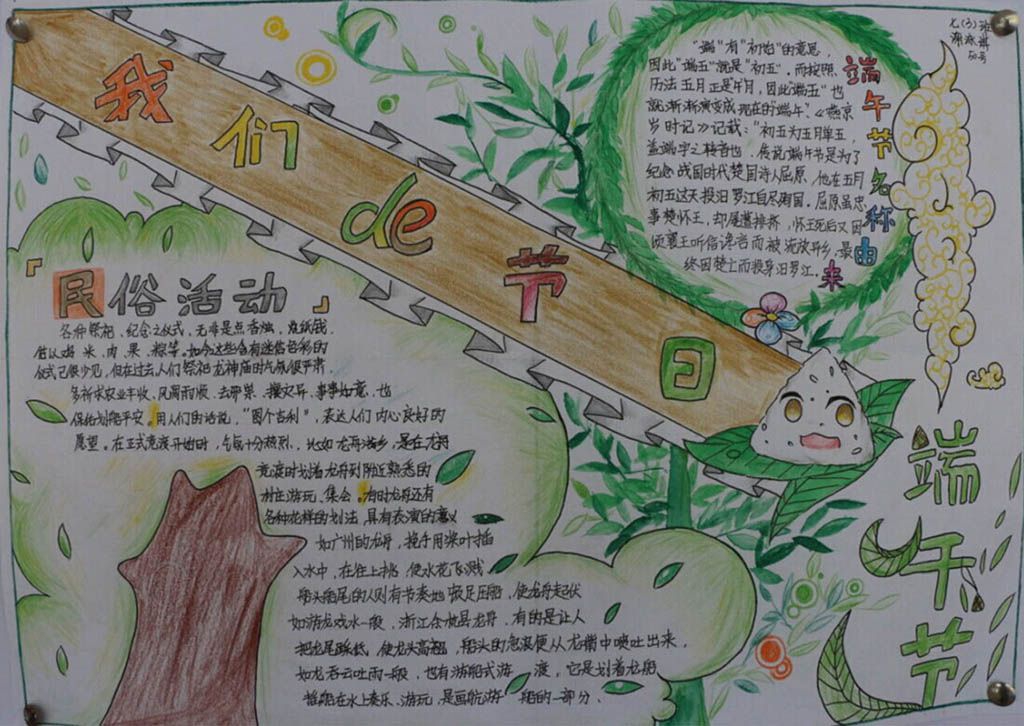 我们de节日
七(3)班
号
端午节名称由来
"端"有"初始"的意思,
因此"端五"就是"初五",而按照
历法五月正是午月,因此"端五"也
就渐渐演变成现在的"端午"《燕京
岁时记》记载:"初五为五月单五,
盖端字之转音也,传说端午节是为了
纪念战国时代楚国诗人屈原,他在五月
初五这天投汨罗江自尽殉国。屈原虽忠
事楚怀王,却屡遭排挤,怀王死后又因
顷襄王听信谗言而被流放异乡,最
终因楚亡而投身汨罗江,
「民俗活动」
各种祭祀、纪念之仪式,无非是点香烛,烧纸钱,
米、肉、果、粽等。如今这些含有迷信色彩的
仪式已很少见,但在过去人们祭祀龙神庙时气氛很严肃
多祈求农业丰收、风调雨顺、去邪祟、攘灾异、事事如意,也
保佑划船平安。用人们的话说,"图个吉利",表达人们内心良好的
愿望。在正式竞渡开始时,气氛十分热烈,比如龙舟游乡,是在龙舟
竞渡时划着龙舟到附近熟悉的
村庄游玩、集会。有时龙舟还有
各种花样的划法,具有表演的意义
如广州的龙舟,挽手用桨叶插
入水中,在往上挑,使水花飞溅
船头船尾的人则有节奏地顿足压船,使龙舟起伏
如游龙戏水一般,浙江余杭县龙舟,有的是让人
把龙尾踩低,使龙头高翘,船头的急浪便从龙嘴中喷吐出来,
如龙吞云吐雨一般,也有游船式海渡,它是划着龙船
船在水上奏乐、游玩,是画舫游船的一部分、
端午节